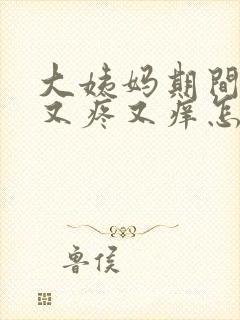 大姨妈期間
又疼又痒怎
鲁侯